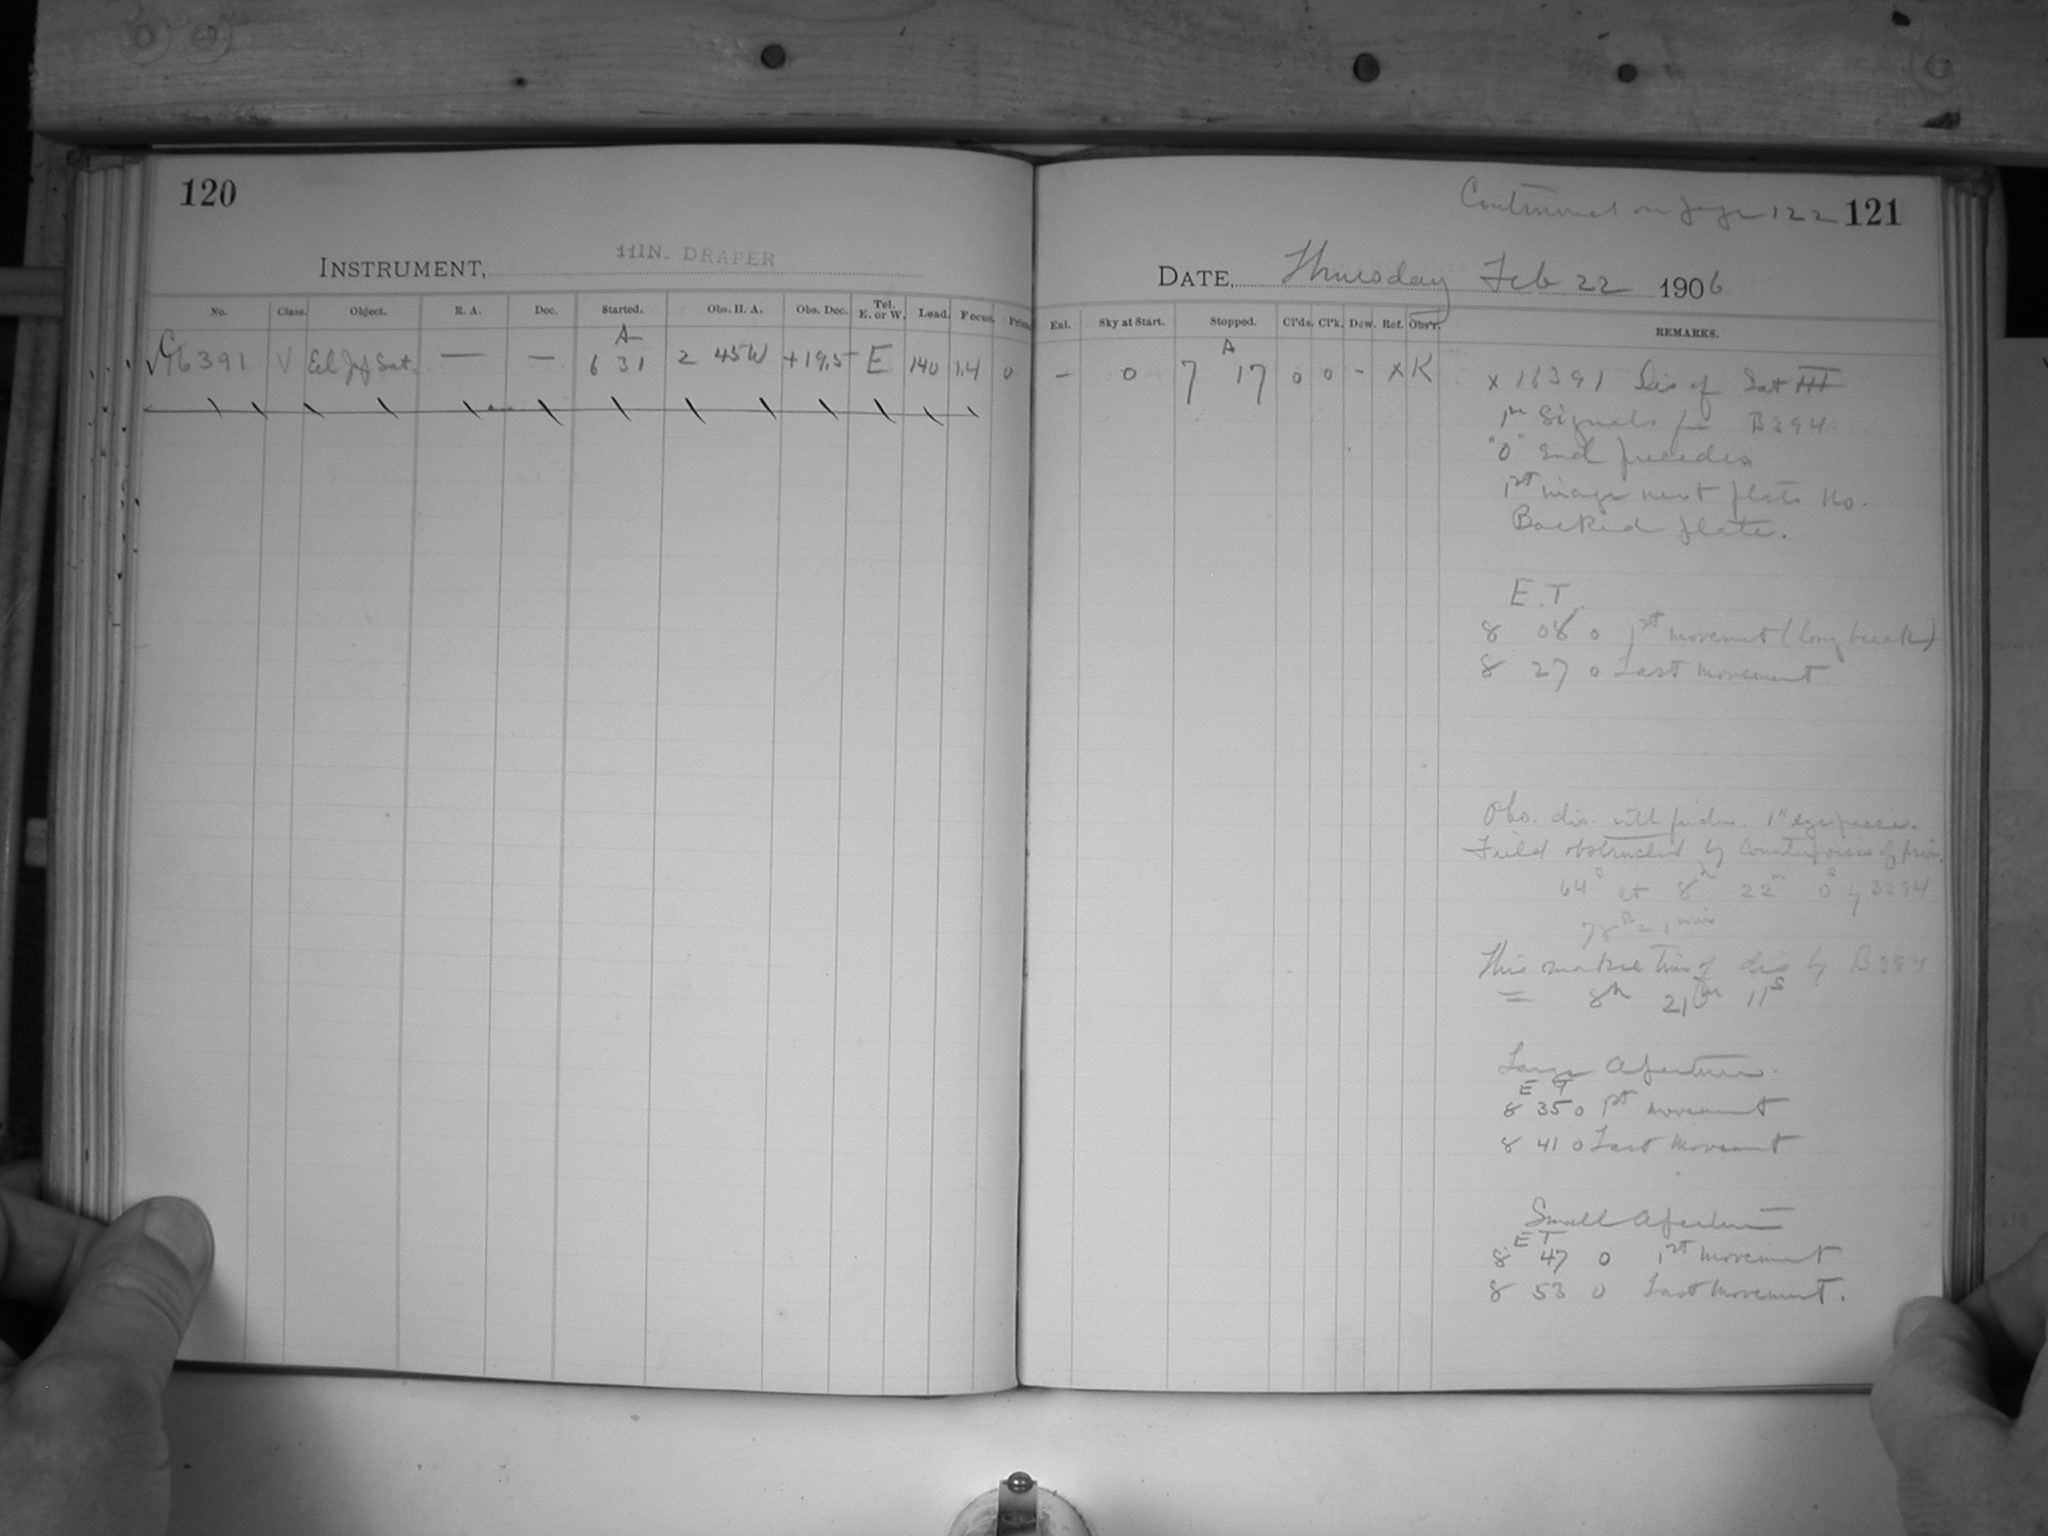 120
INSTRUMENT, 11 IN. DRAPER
No. Class. Object. R. A. Dec. Started. Obs. H. A. Obs. Dec. Tel. E. or W. Load. Focus. Prism.
A
√ C 16391 V Ecl Jup Sat. — — 6 31 2 45W +19.5 E 140 1.4 0
Continued on page 122 121
DATE, Thursday Feb 22 1906
Exl. Sky at Start. Stopped. Cl'ds. Cl'k. Dew. Ref. Obs'r. REMARKS.
A
— 0 7 17 0 0 - x K
x 16391 Dis of Sat III
1m Signals fr B394
"0" End precedes
1st image next plate No.
Backed plate.
E. T.
8 08 0 1st movement (long break)
8 27 0 Last movement
Obs. dis. with finder. 1" eyepiece.
Field obstructed by counterpoises of prism
64 at 8h 22m 0s by B394
78 = 1 min
This makes time of dis by B394
= 8h 21m 11s
Large Aperture.
E T
8 35 0 1st movement
8 41 0 Last Movement
Small Aperture
E T
8 47 0 1st movement
8 53 0 Last Movement.